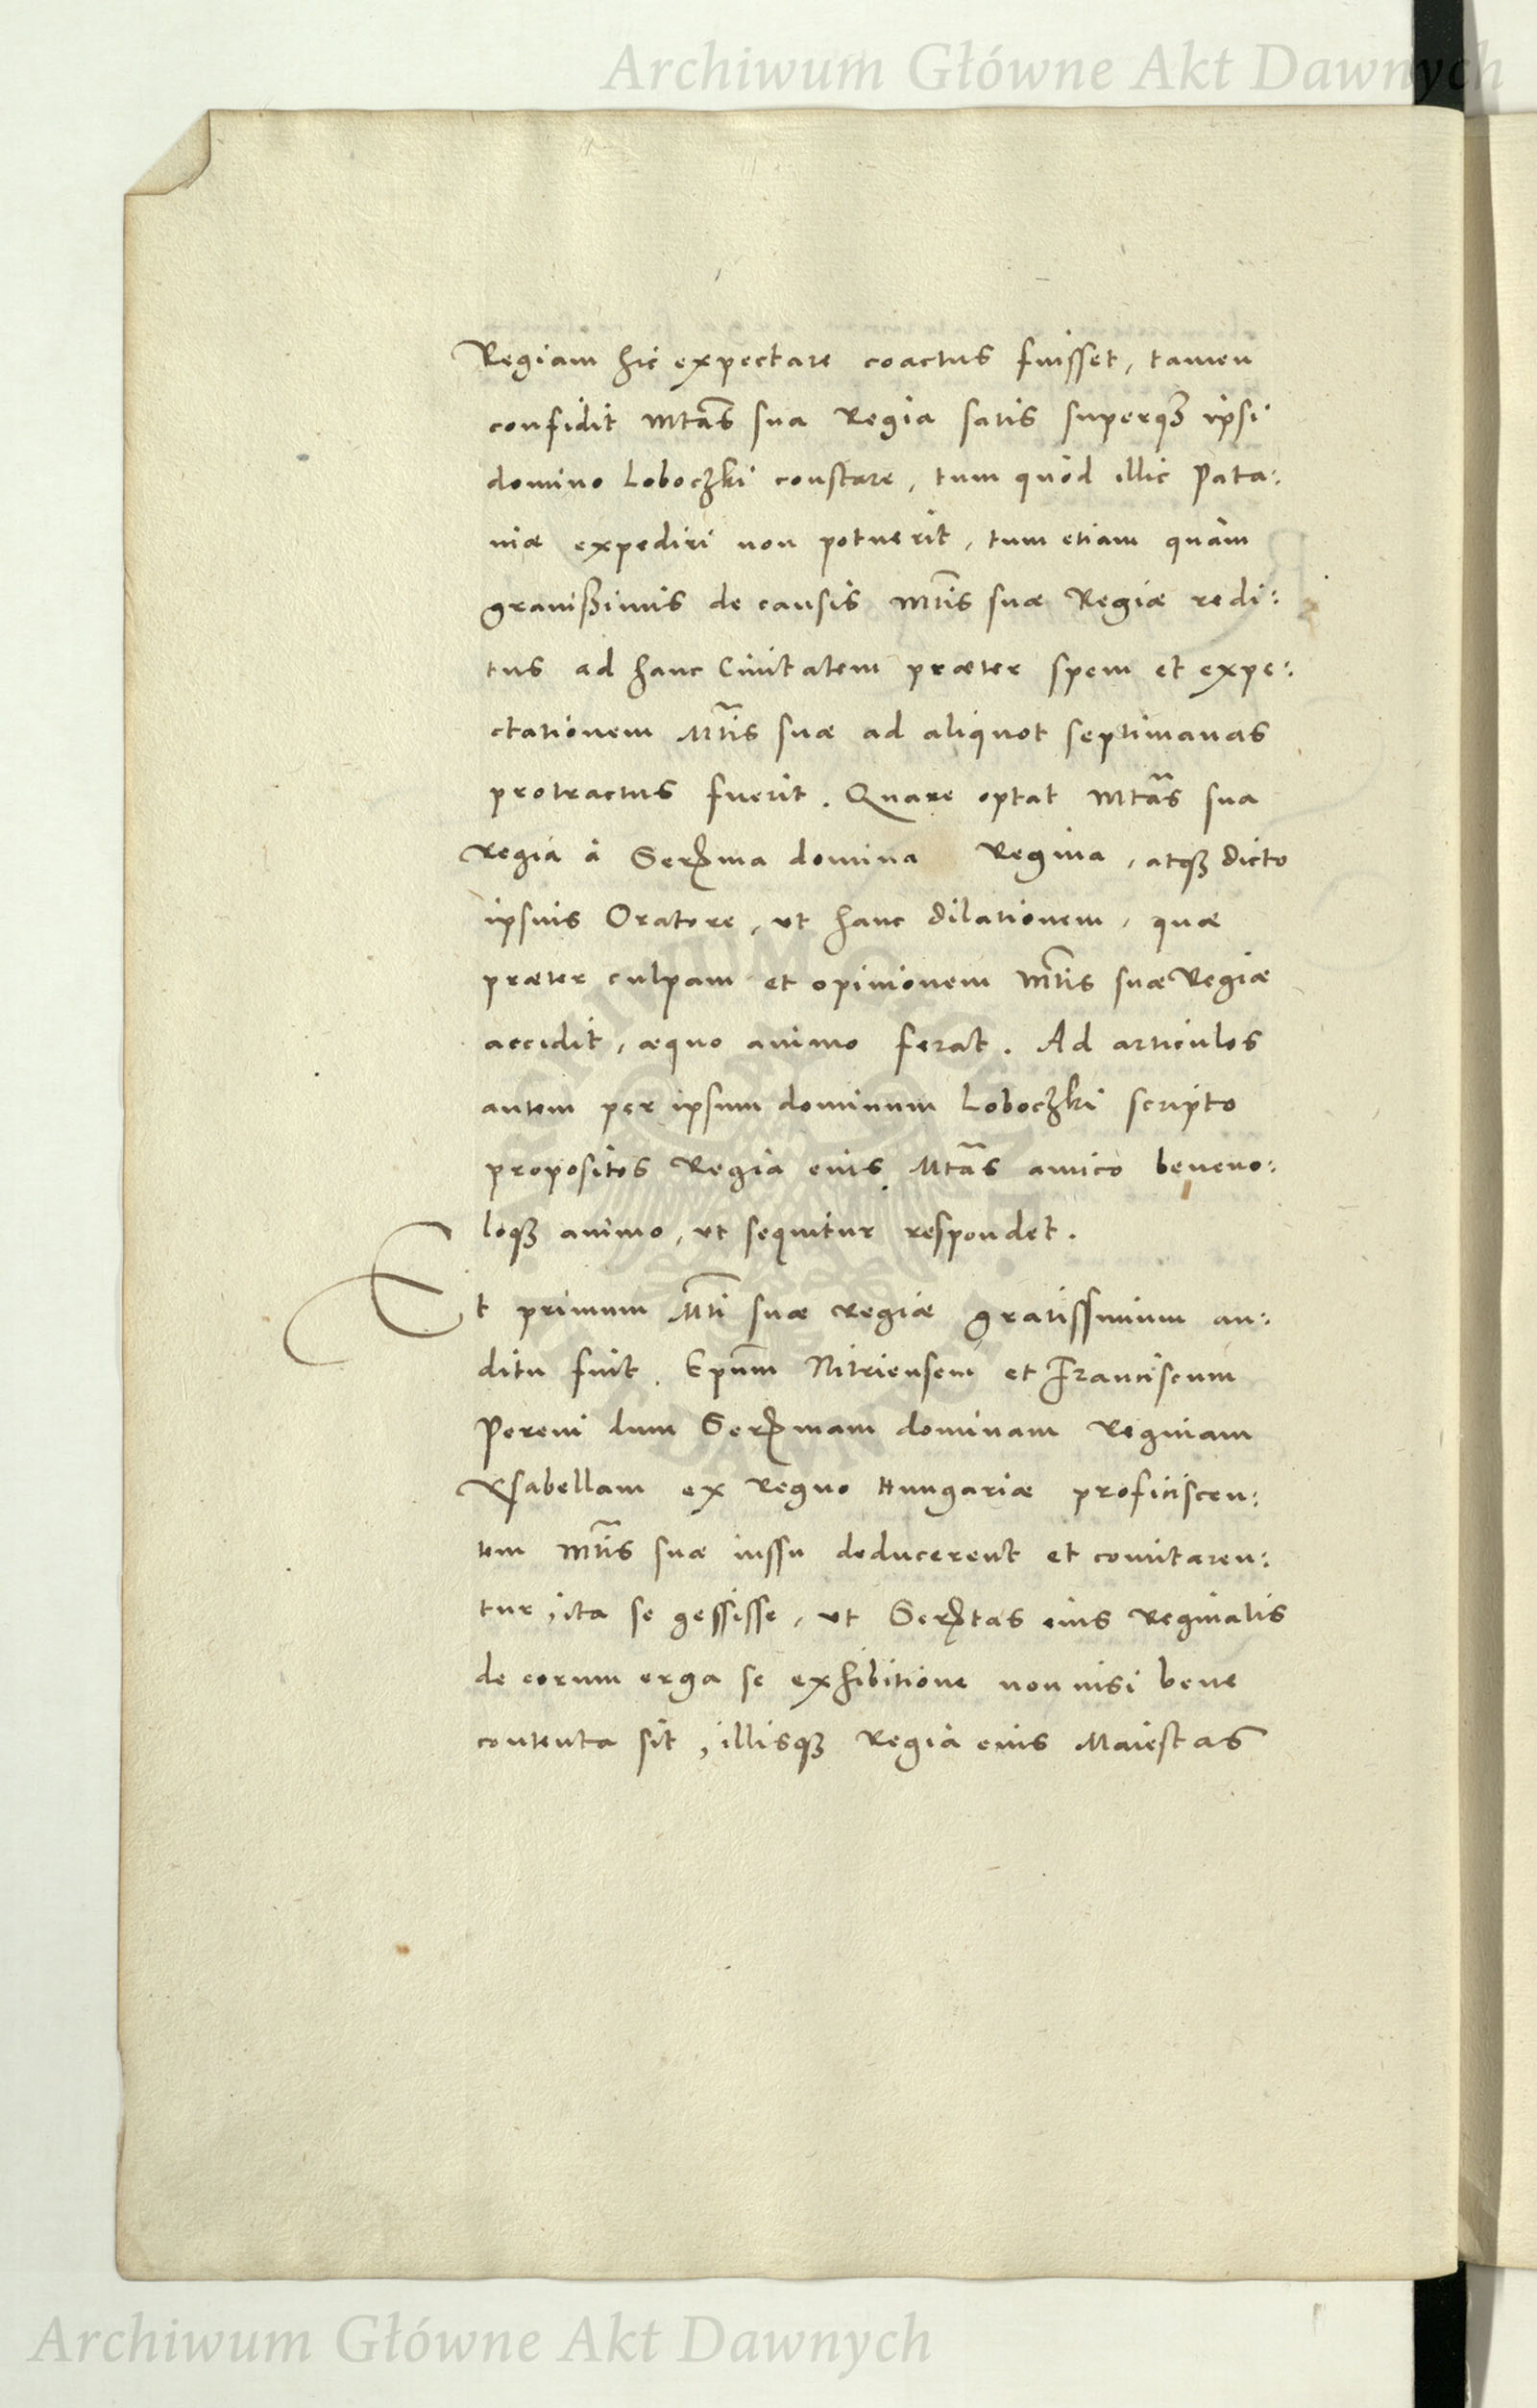 Archiwum Główne Akt Dawnych
Regiam hic expectare coactus fuisset, tamen
confidit Mtas sua Regia satis superq3 ipsi
domino Loboczki constare, tum quòd illic Pata:
niæ expediri non potuerit, tum etiam quàm
grauißimis de causis Mtis suæ Regiæ redi:
tus ad hanc Ciuitatem præter spem et expe:
ctationem Mtis suæ ad aliquot septimanas
protractus fuerit. Quare optat Mtas sua
Regia à Serma domina Regina, atq3 dicto
ipsius Oratore, ut hanc dilationem, quæ
præter culpam et opinionem Mtis suæ Regiæ
accidit, æquo animo ferat. Ad articulos
autem per ipsum dominum Loboczki scripto
propositos Regia eius Mtas amico beneuo:
loq3 animo, ut sequitur respondet.
Et primum Mti suæ Regiæ gratissimum au:
ditu fuit. Epum Nitriensem et Franciscum
Pereni dum Sermam dominam Reginam
Ysabellam ex Regno Hungariæ proficiscen:
tem Mtis suæ iussu deducerent et comitaren:
tur, ita se gessisse, ut Sertas eius Reginalis
de eorum erga se exhibitione non nisi bene
contenta sit, illisq3 Regia eius Maiestas
Archiwum Główne Akt Dawnych